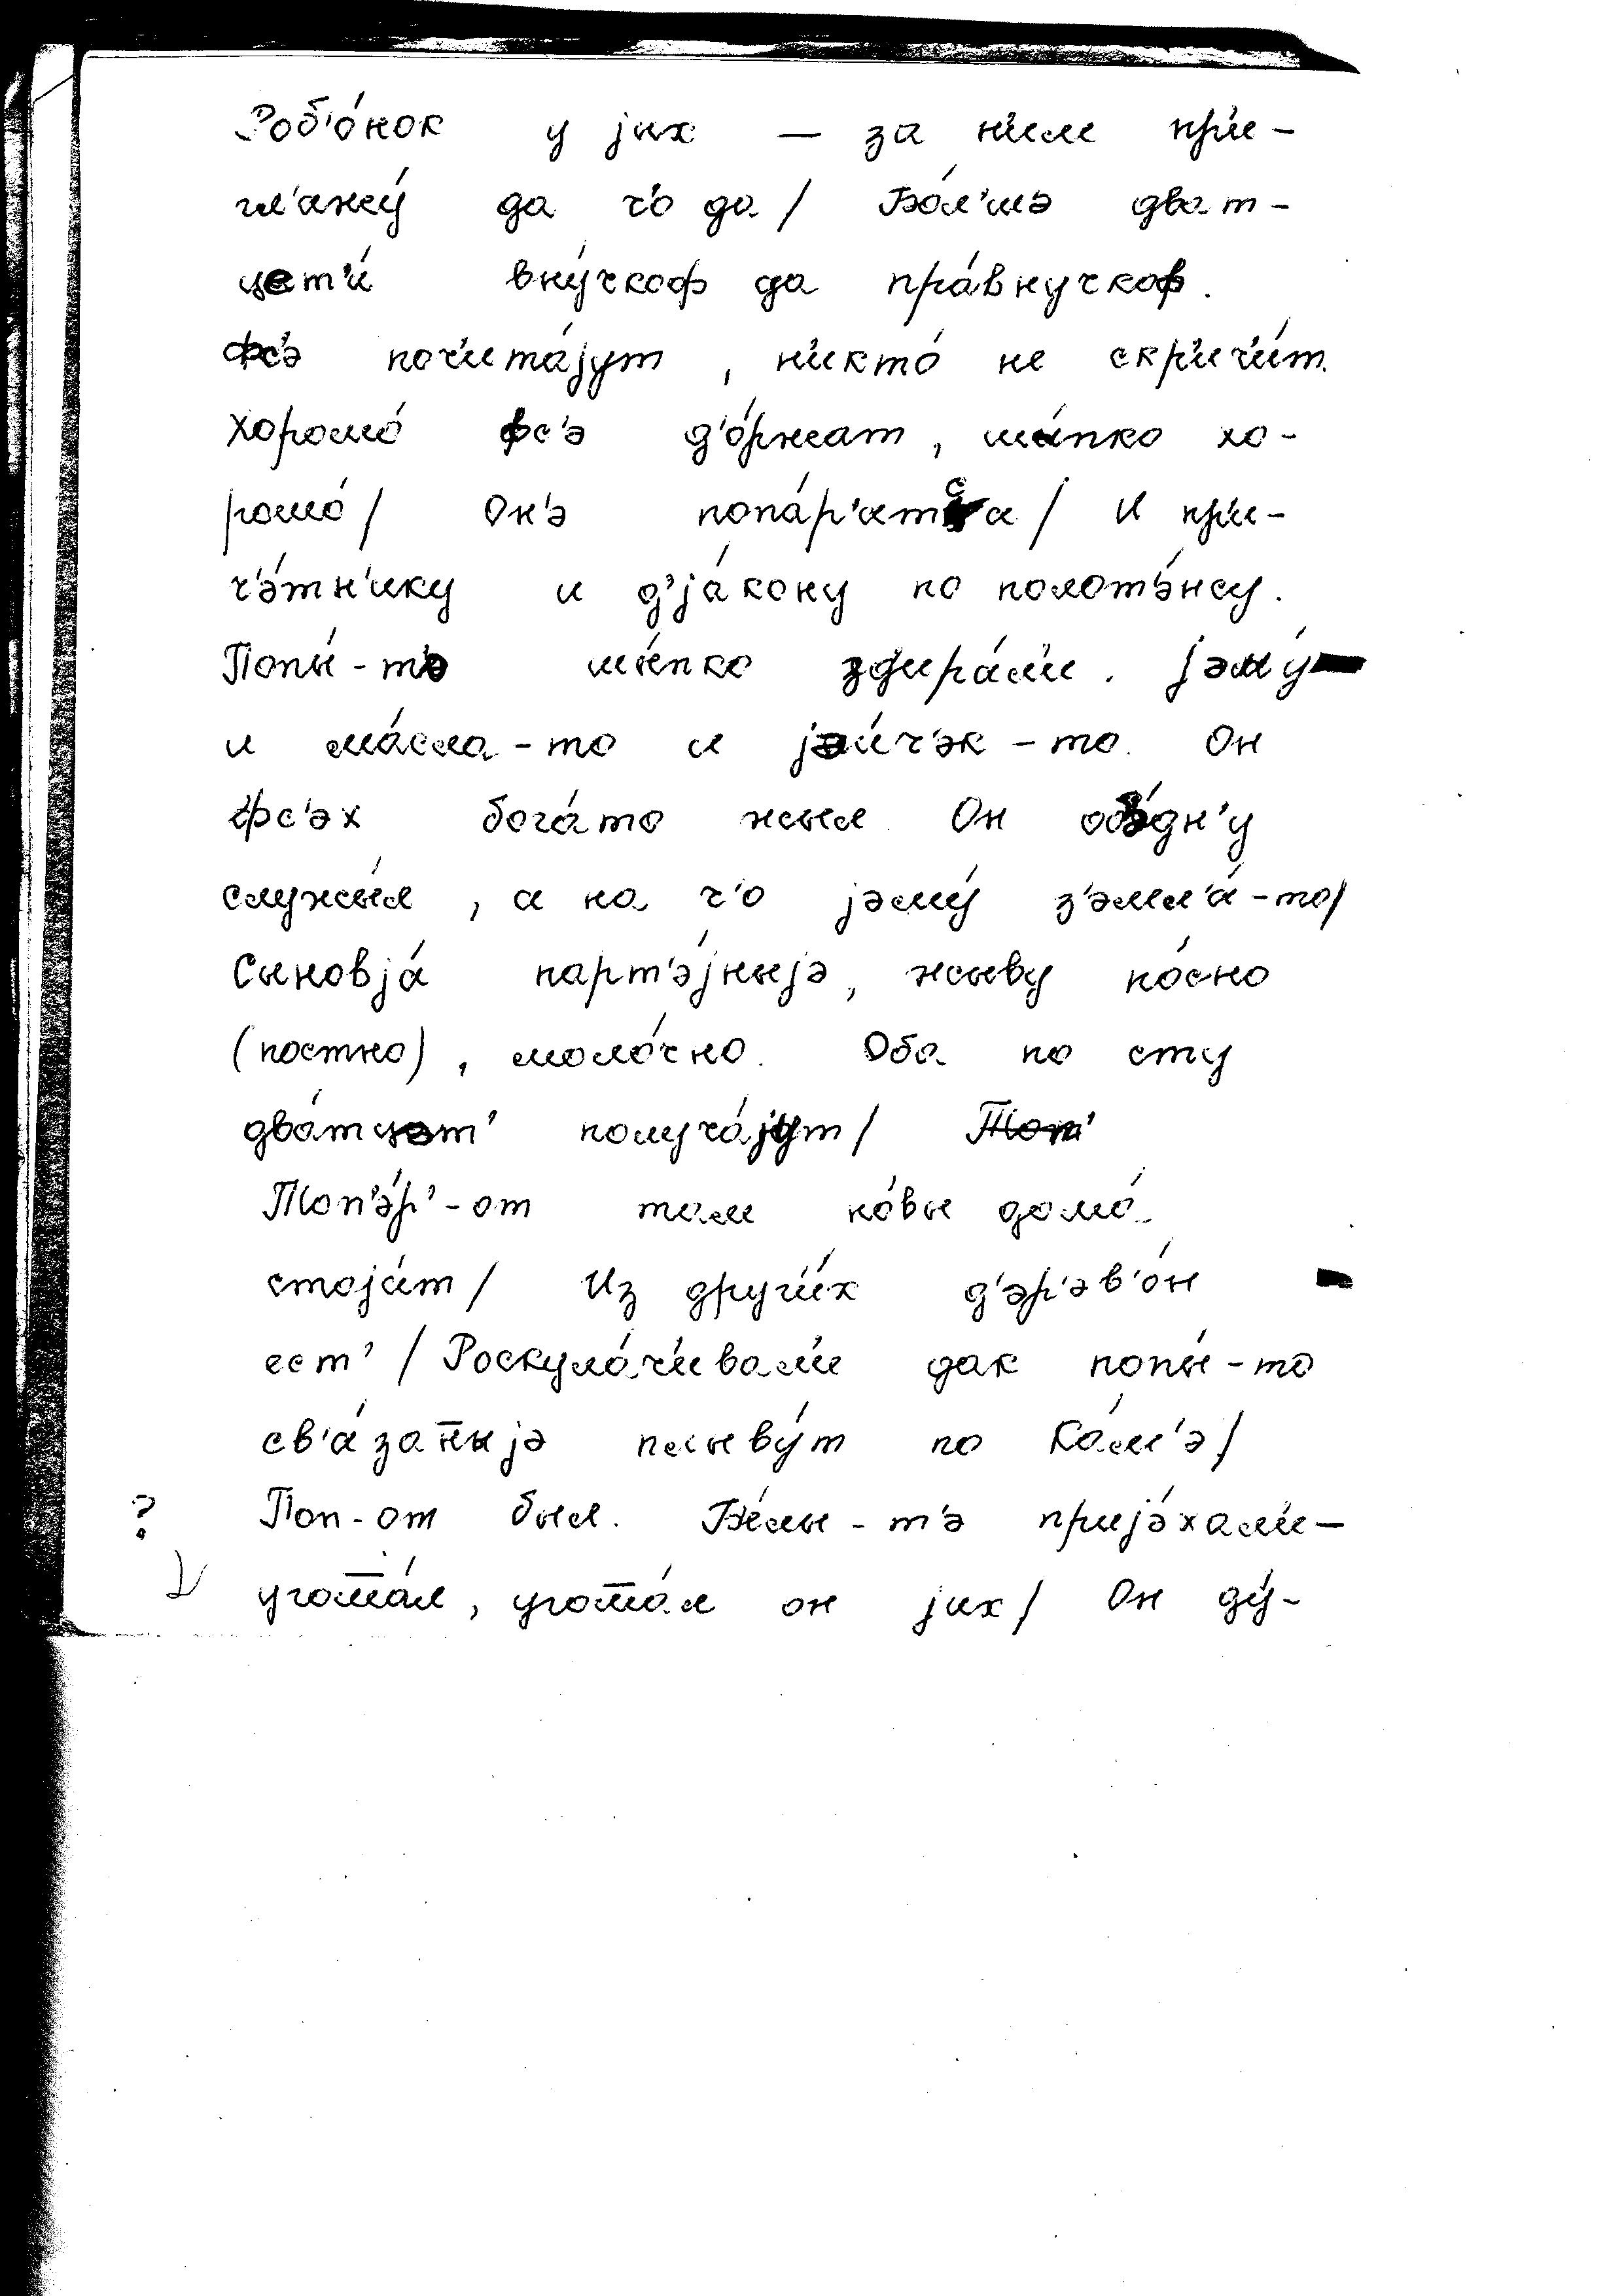 Роб'о́нок у jих — за н'им при-
гл'ажу́ да ч'о да / Бо́л'шэ дват-
цет'и́ вну́чкоф да пра́внучкоф.
Фс'э поч'ита́jут, н'икто́ не скр'ич'и́т.
Хорошо́ фс'э д'о́ржат, шы́пко хо-
рошо́ / Он'э попа́р'атса / И при-
ч'э́тн'ику и д'jа́кону по полот'э́нсу.
Попы́-т'э шы́пко здира́л'и. Jэму́
и ма́сла-то и jэи́ч'эк-то. Он
фс'эх бога́то жыл. Он об'э́дн'у
служы́л, а на ч'о jэму́ з'эмл'а́-то /
Сыновjа́ парт'э́jныjэ, жыву по́сно
(постно), моло́чно. Оба по сту
два́тцэт' получа́jут /
Топ'э́р'-от там но́вы дома́
стоjа́т / Из друг'и́х д'эр'эв'о́н
ест' / Роскула́ч'ивал'и дак попы́-то
св'а́зан̄ыjэ плыву́т по Ка́м'э /
? Поп-от был. Б'е́лы-т'э приjэ́хал'и —
V угош̄а́л, угош̄а́л он jих / Он ду́-